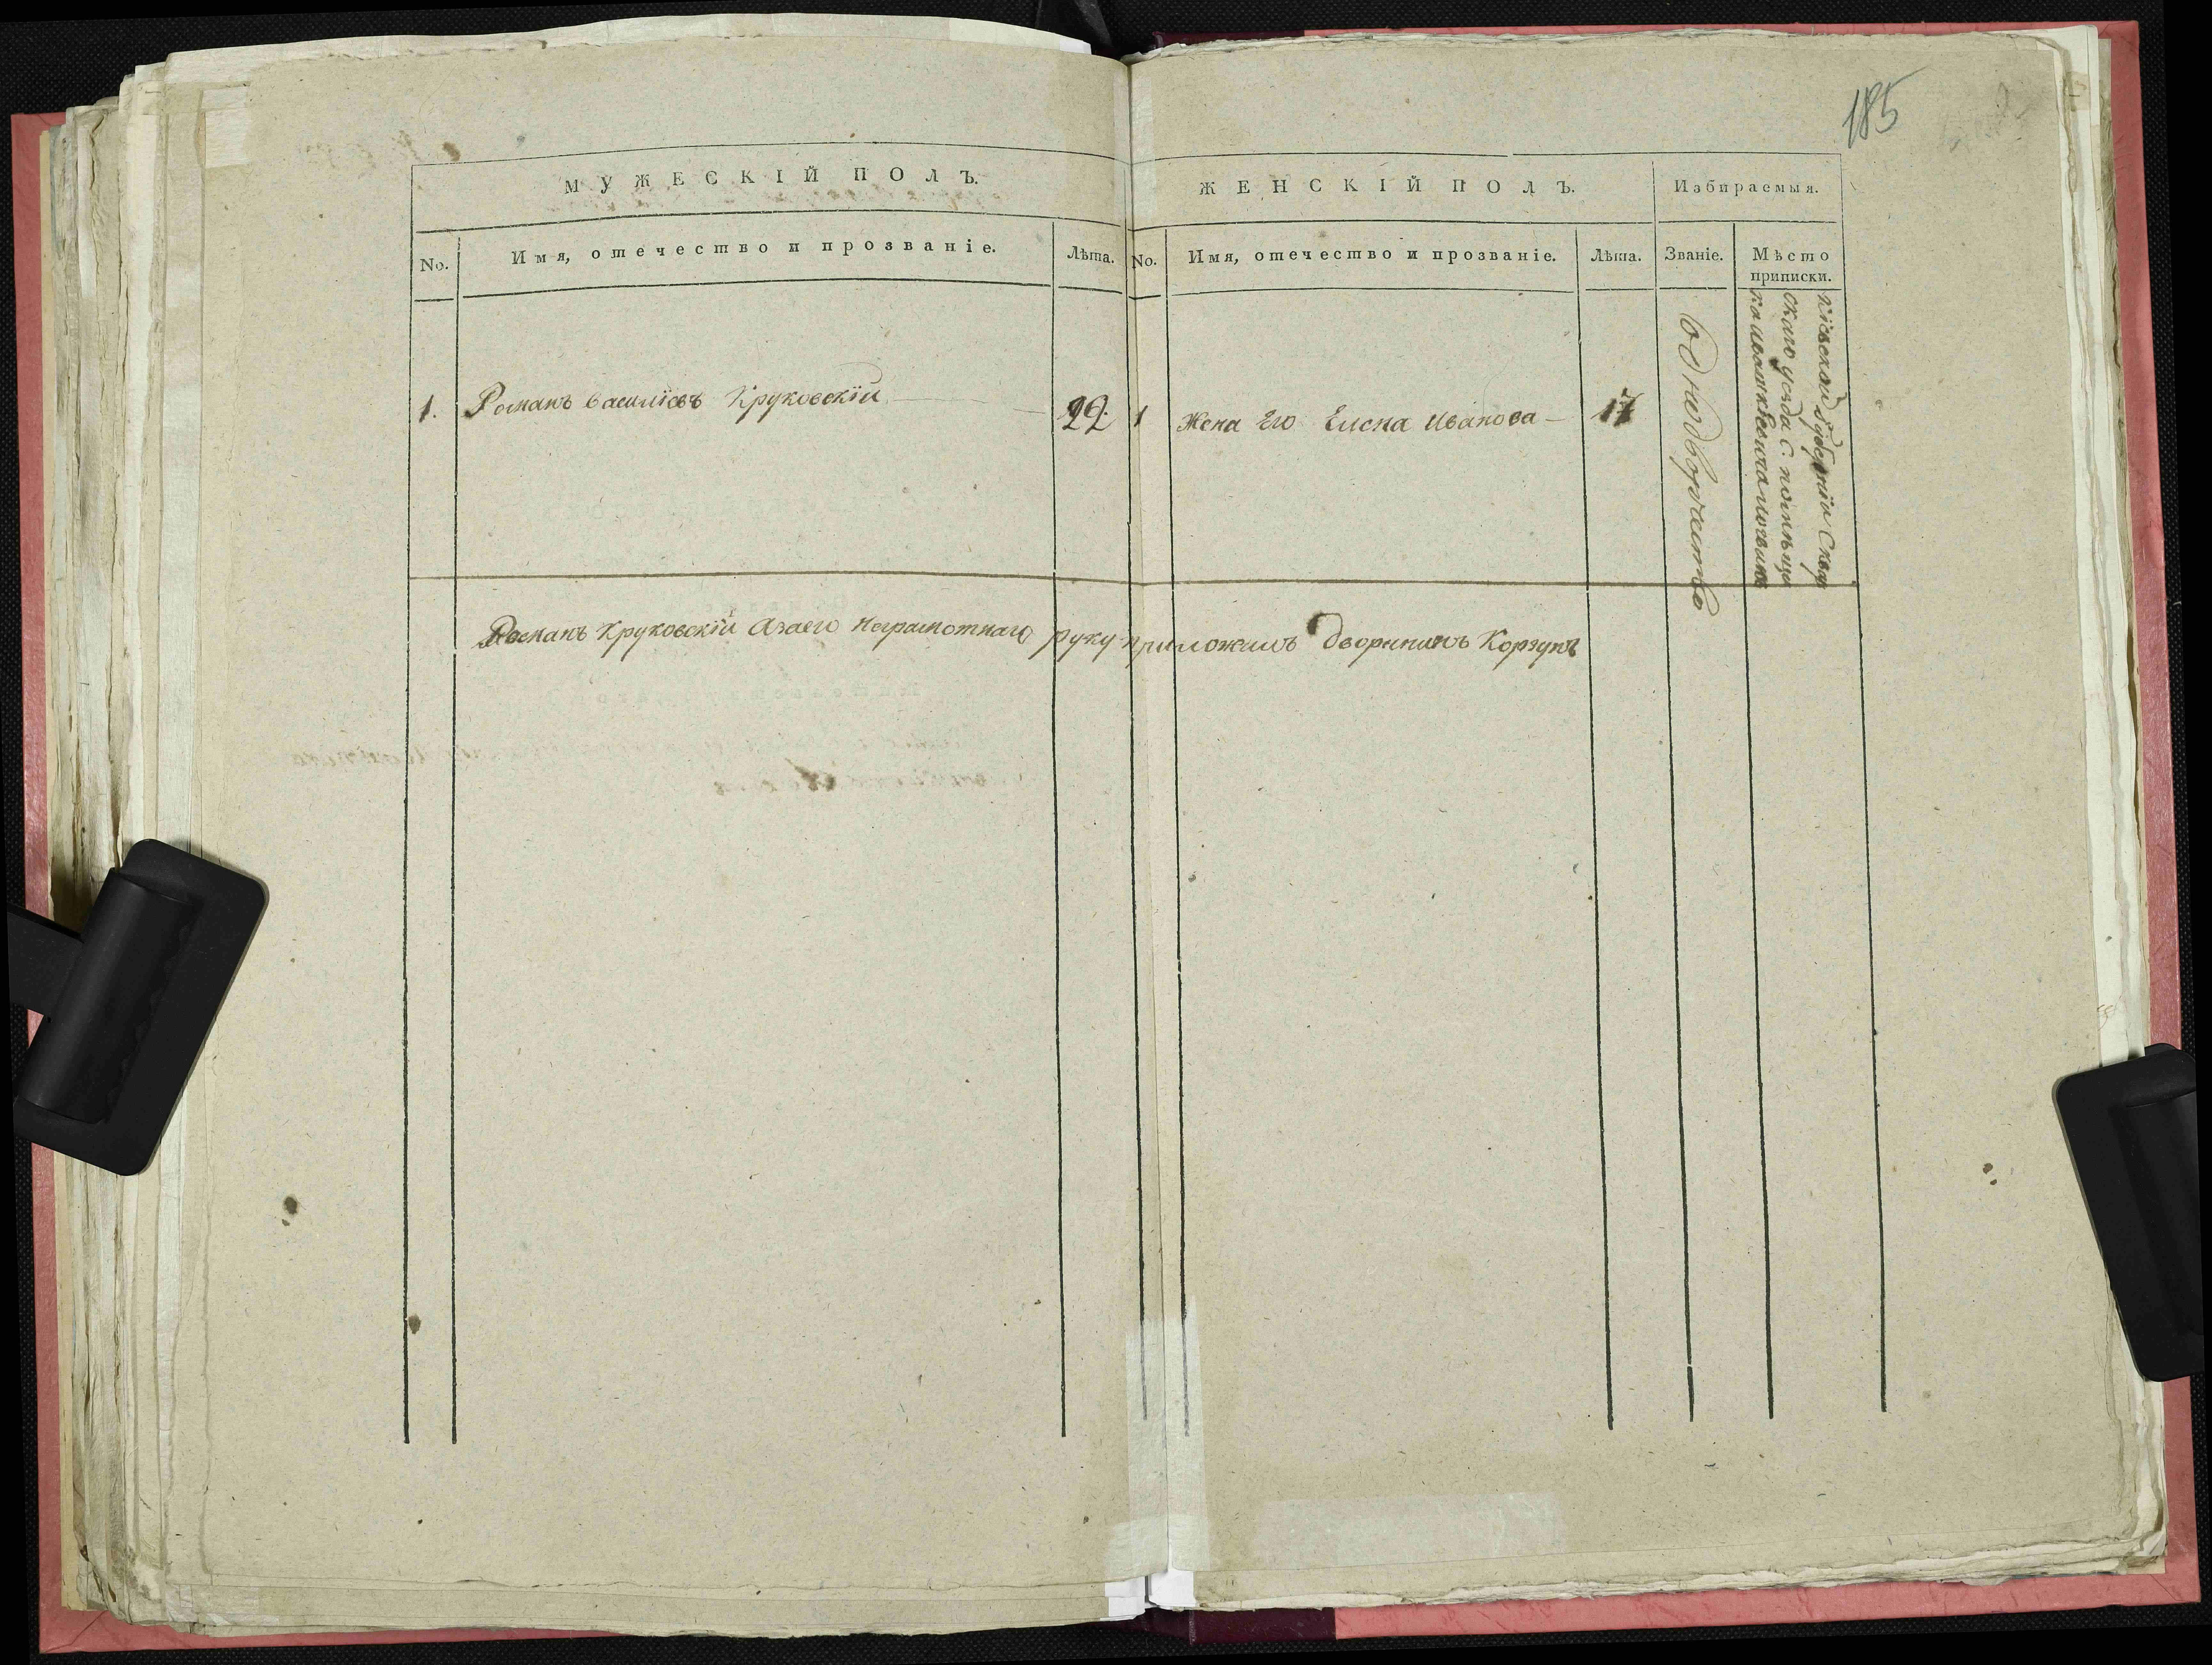 185
МУЖЕСКІЙ ПОЛЪ.
ЖЕНСКІЙ ПОЛЪ.
Избираемыя.
No.
Имя, отечество и прозваніе.
Лѣта.
No.
Имя, отечество и прозваніе.
Лѣта.
Званіе.
Мѣсто
приписки.
1.
Романъ Василіевъ Круковскій
22.
1
Жена Его Елена Иванова —
17
Въ однодворчество
Кіевской Губерніи Сквир
скаго уезда С.
Романъ Круковскій Азаего Неграмотнаго руку приложилъ Дворянинъ Корзунъ